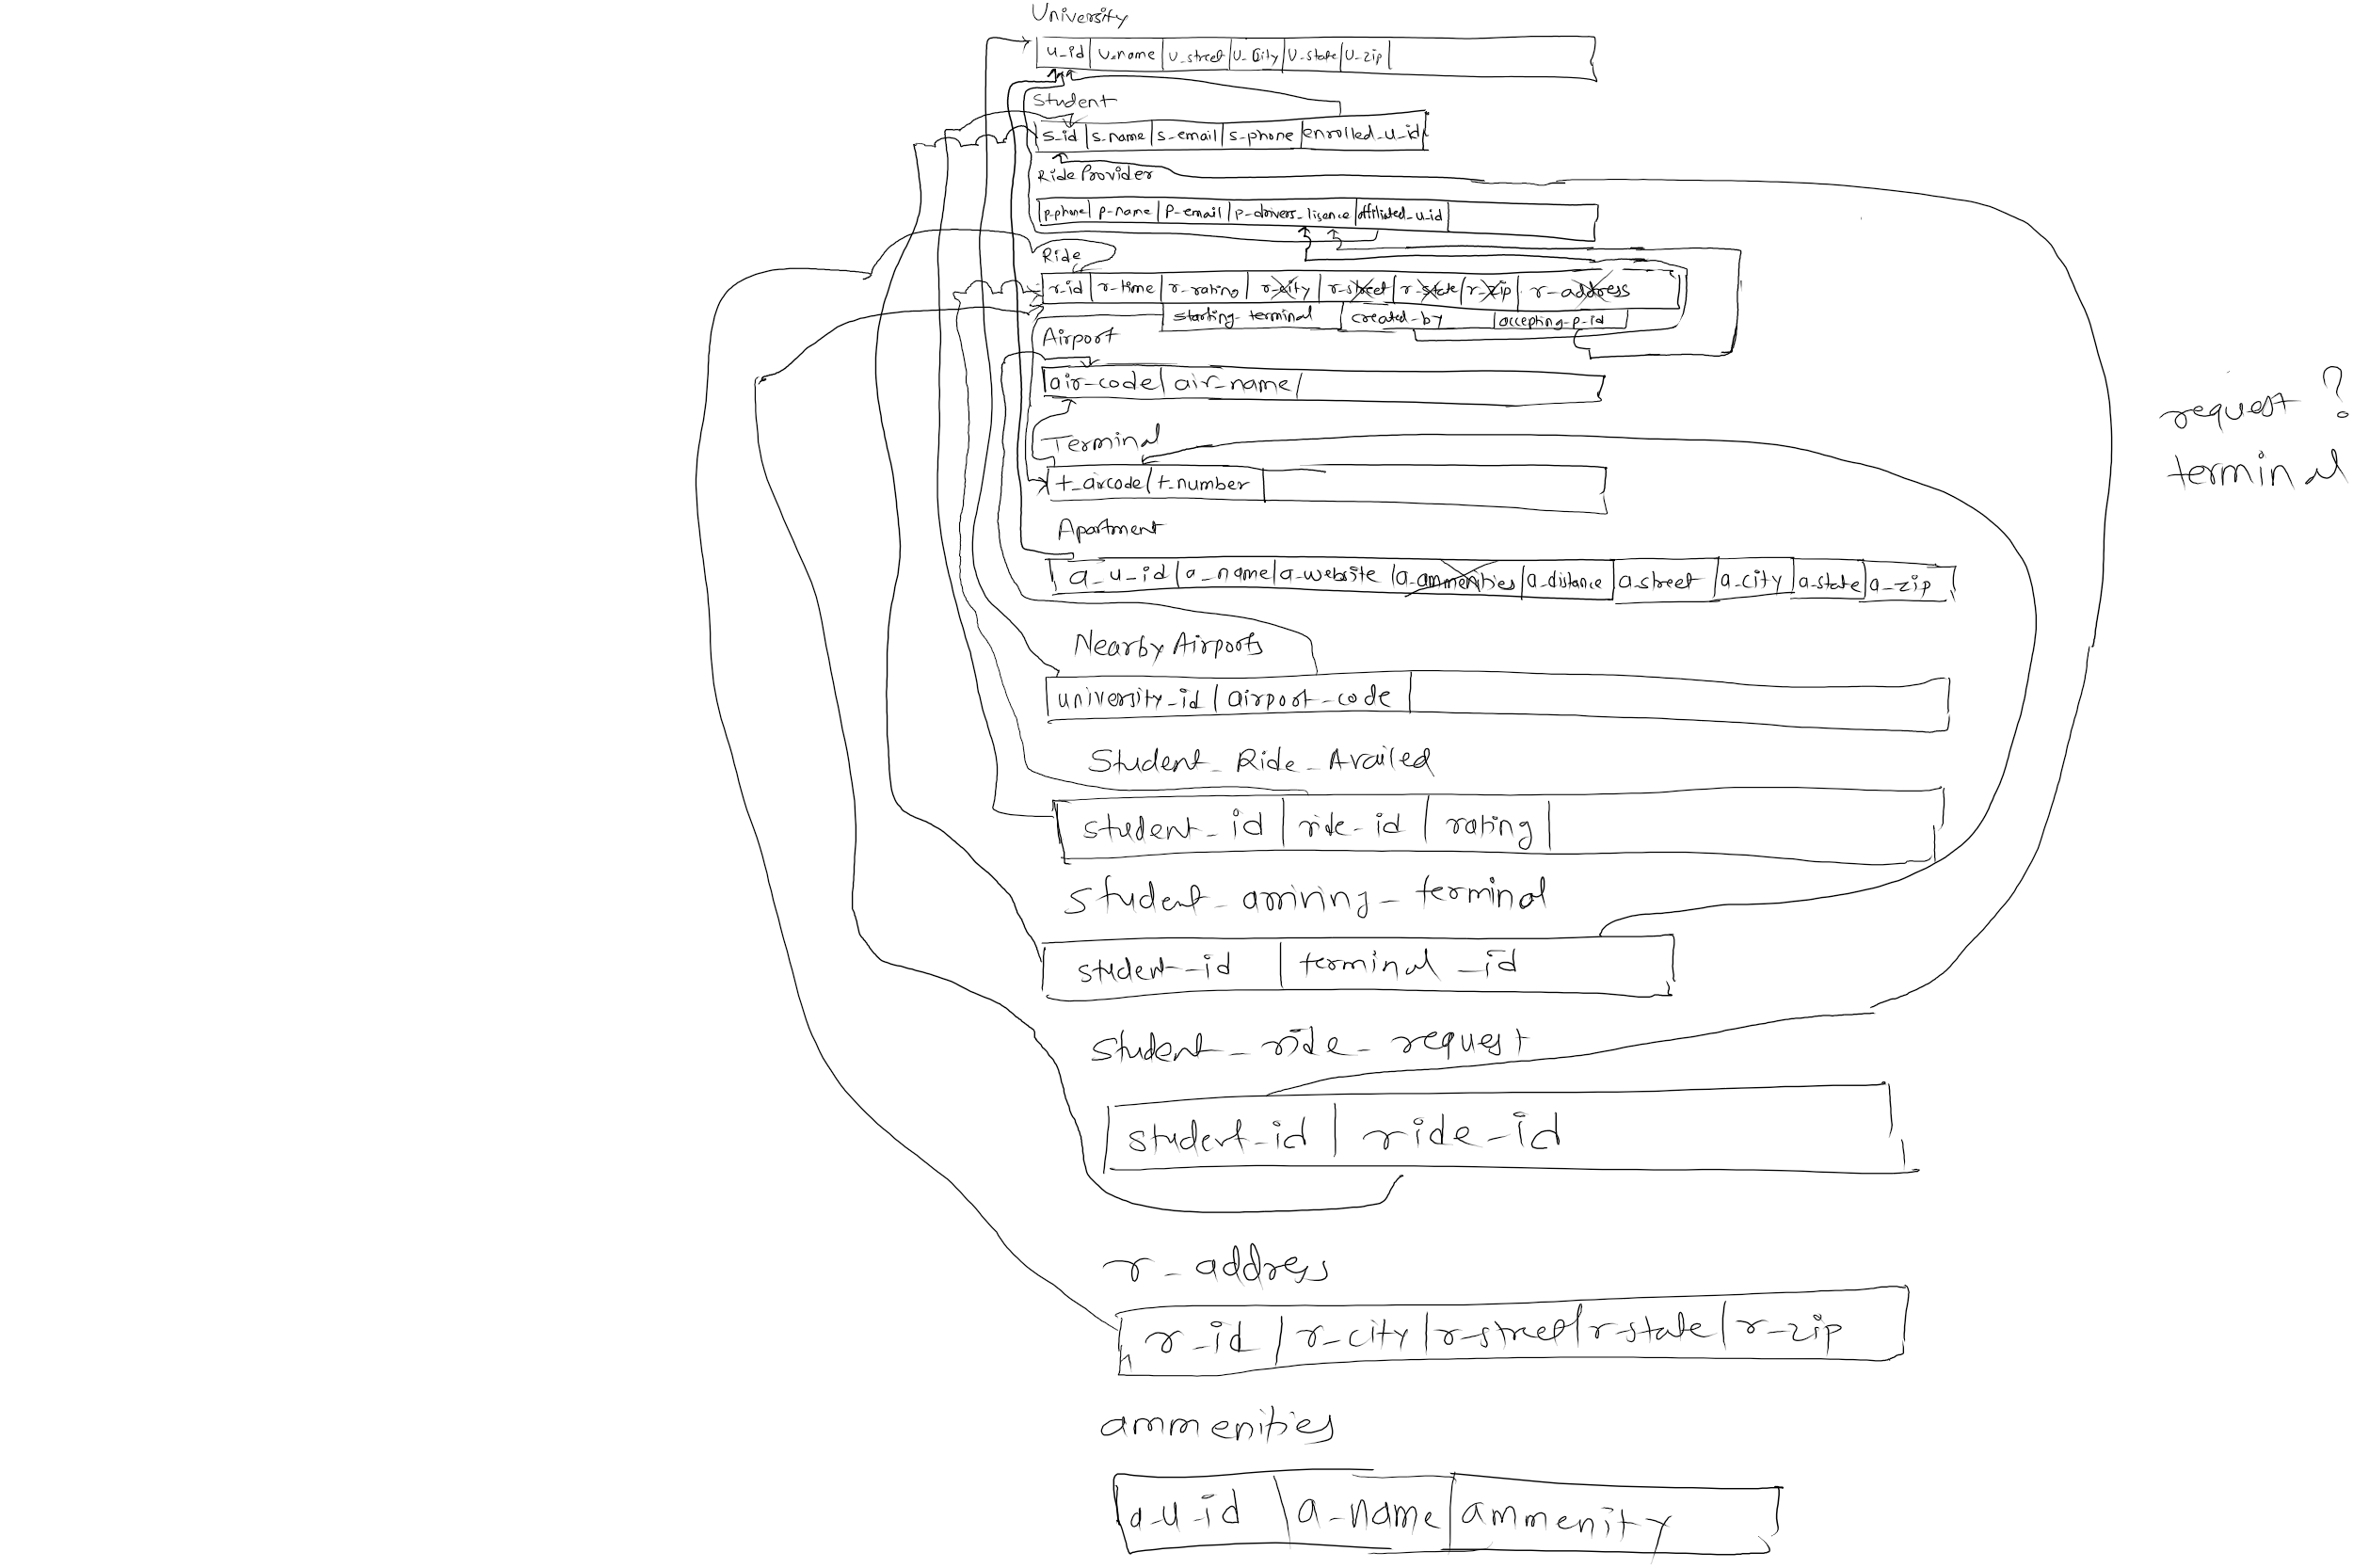 University
u_id | u_name | u_street | u_city | u_state | u_zip |
Student
s_id | s_name | s_email | s_phone | enrolled_u_id
Ride Provider
p_phone | p_name | p_email | p_drivers_lisence | affiliated_u_id
Ride
r_id | r_time | r_rating | r_city | r_street | r_state | r_zip | r_address
starting_terminal | created_by | accepting_p_id
Airport
air_code | air_name |
request ?
Terminal
terminal
t_aircode | t_number
Apartment
a_u_id | a_name | a_website | a_ammenities | a_distance | a_street | a_city | a_state | a_zip
Nearby Airports
university_id | airport_code
Student_Ride_Availed
student_id | ride_id | rating |
Student_arriving_terminal
student_id | terminal_id
student_ride_request
student_id | ride_id
r_address
r_id | r_city | r_street | r_state | r_zip
ammenities
a_u_id | a_name | ammenity